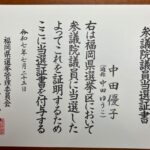 参議院議員当選証書
中田優子
(通称 中田ゆうこ)
右は福岡県選挙区において
参議院議員に当選した
よってこれを証明するため
ここに当選証書を付与する
令和七年七月二十五日
福岡県選挙管理委員会